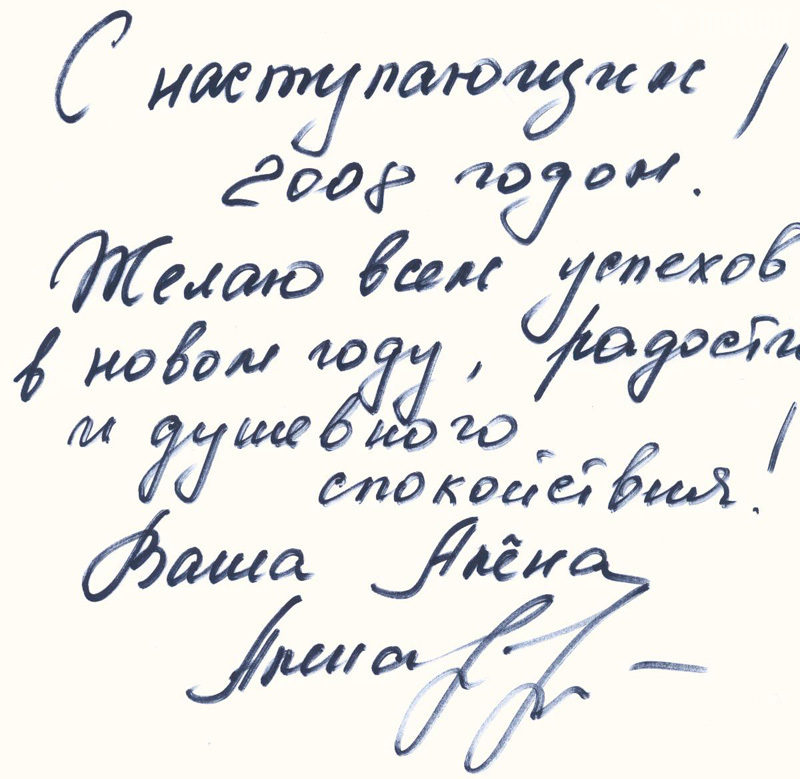 С наступающим
2008 годом.!
Желаю всем успехов
в новом году, радости
и душевного
спокойствия.!
Ваша Алёна
Алена